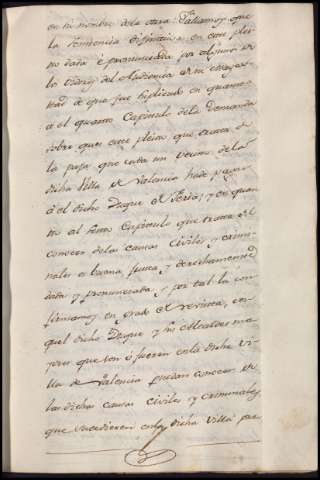 en su nombre de la otra: Fallamos que
la Sentencia difinitiva en este plei-
to dada e pronunciada por algunos de
los Oidores del Audiencia de su Mages-
tad de que fue suplicado en quanto
á el quarto Capitulo de la Demanda
sobre que es este pleito que trata de
la paja que cada un vecino de la
dicha Villa de Valencia hade pagar
á el dicho Duque de Feria; y en quan-
to al sesto Capitulo que trata del
conocer de las causas Civiles y crimi-
nales es buena, justa, y derechamente
dada y pronunciada, y por tal la con-
firmamos en grado de revista, con-
quel dicho Duque y sus Alcaldes ma-
yores que son ó fueren en la dicha Vi-
lla de Valencia puedan conocer de
las dichas causas Civiles y criminales
que sucedieren en la dicha Villa por